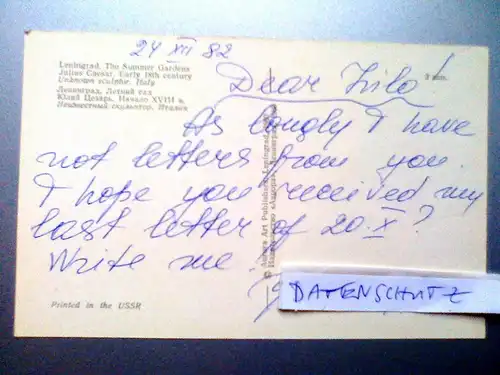 24 XII 82
Leningrad. The Summer Gardens
Julius Caesar. Early 18th century
Unknown sculptor. Italy
Ленинград. Летний сад
Юлий Цезарь. Начало XVIII в.
Неизвестный скульптор. Италия
3 коп.
Dear Kilo!
As longly I have
not letters from you.
I hope you received my
last letter of 20.X?
Write me.
© Aurora Art Publishers, Leningrad
Издательство «Аврора», Ленинград
Printed in the USSR
DATENSCHUTZ